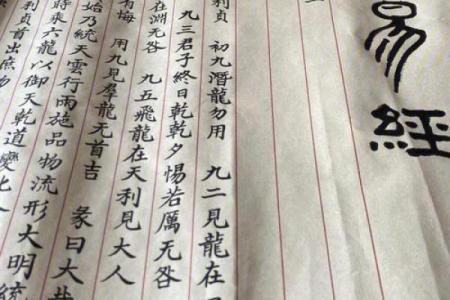 易經
利貞 初九潛龍勿用 九二見龍在
九三君子終日乾乾夕惕若厲无咎
在淵无咎 九五飛龍在天利見大人
有悔 用九見羣龍无首吉 彖曰大哉
始乃統天雲行雨施品物流形大明終
時乘六龍以御天乾道變化
利貞首出庶物